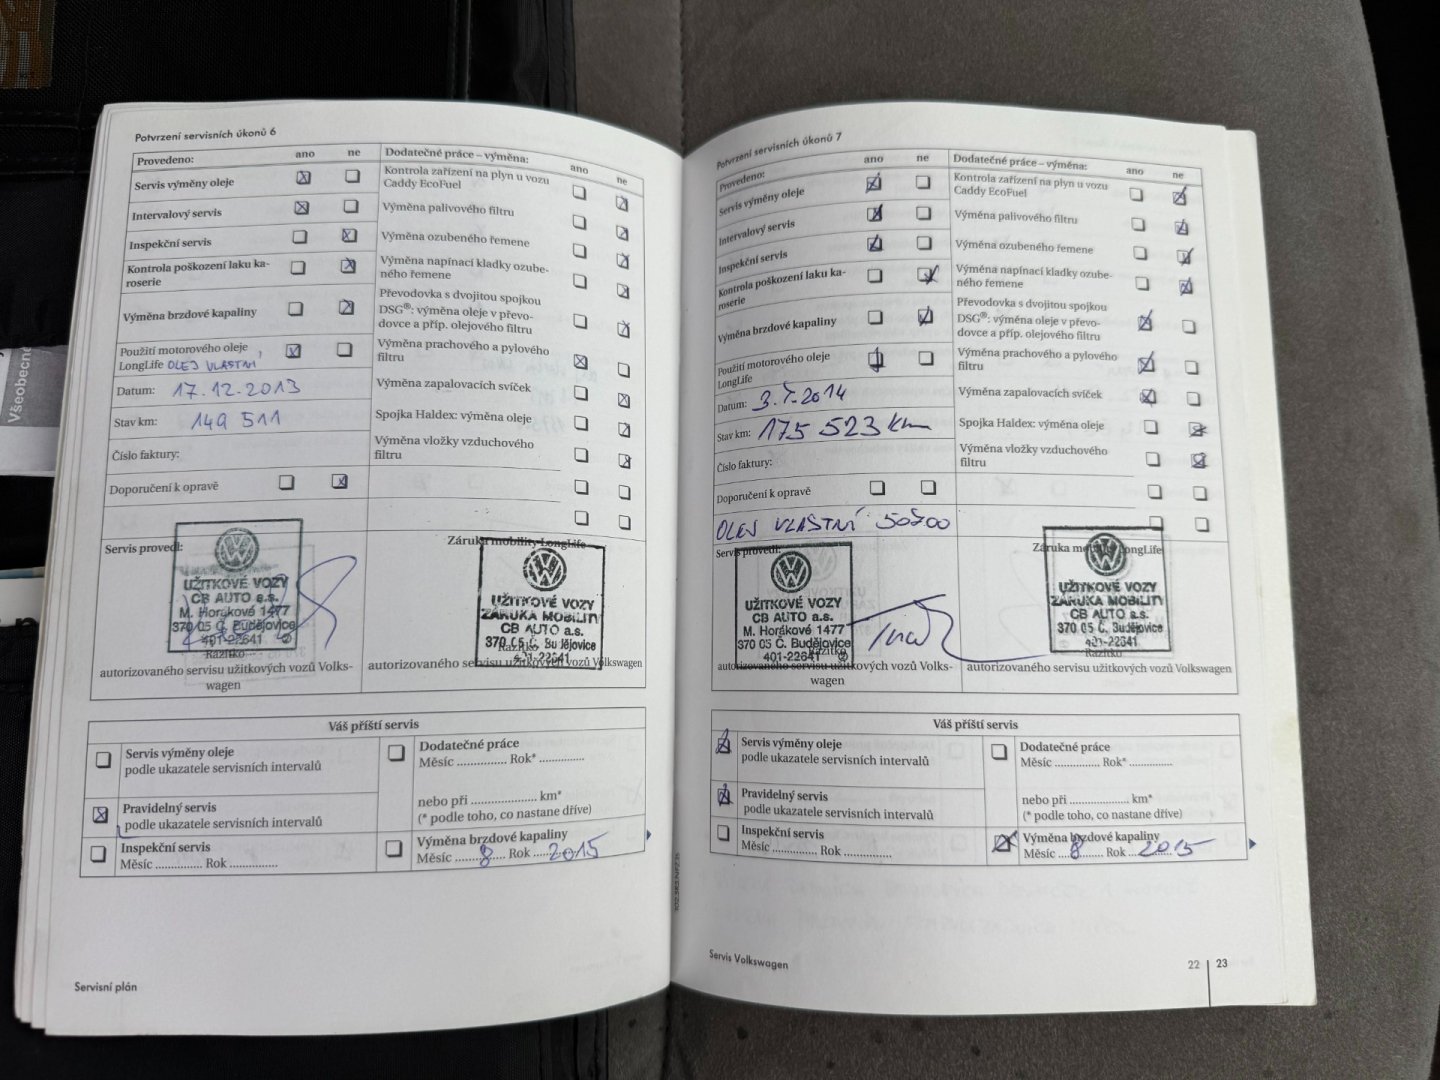 Všeobecné
Potvrzení servisních úkonů 6
Provedeno: ano ne
Servis výměny oleje
Intervalový servis
Inspekční servis
Kontrola poškození laku ka-
roserie
Výměna brzdové kapaliny
Použití motorového oleje
LongLife OLEJ VLASTNÍ
Datum: 17.12.2013
Stav km: 149 511
Číslo faktury:
Doporučení k opravě
Dodatečné práce – výměna: ano ne
Kontrola zařízení na plyn u vozu
Caddy EcoFuel
Výměna palivového filtru
Výměna ozubeného řemene
Výměna napínací kladky ozube-
ného řemene
Převodovka s dvojitou spojkou
DSG®: výměna oleje v převo-
dovce a příp. olejového filtru
Výměna prachového a pylového
filtru
Výměna zapalovacích svíček
Spojka Haldex: výměna oleje
Výměna vložky vzduchového
filtru
Servis provedl:
UŽITKOVÉ VOZY
CB AUTO a.s.
M. Horákové 1477
370 05 Č. Budějovice
401-22641 2
Razítko
autorizovaného servisu užitkových vozů Volks-
wagen
Záruka mobility LongLife
UŽITKOVÉ VOZY
ZÁRUKA MOBILITY
CB AUTO a.s.
370 05 Č. Budějovice
401-22641
Razítko
autorizovaného servisu užitkových vozů Volkswagen
Váš příští servis
Servis výměny oleje
podle ukazatele servisních intervalů
Pravidelný servis
podle ukazatele servisních intervalů
Inspekční servis
Měsíc .............. Rok ..............
Dodatečné práce
Měsíc .............. Rok* ..............
nebo při .................... km*
(* podle toho, co nastane dříve)
Výměna brzdové kapaliny
Měsíc ....... 8 ... Rok .... 2015
Servisní plán
Potvrzení servisních úkonů 7
Provedeno: ano ne
Servis výměny oleje
Intervalový servis
Inspekční servis
Kontrola poškození laku ka-
roserie
Výměna brzdové kapaliny
Použití motorového oleje
LongLife
Datum: 3. 2014
Stav km: 175 523 km
Číslo faktury:
Doporučení k opravě
OLEJ VLASTNÍ 50700
Dodatečné práce – výměna: ano ne
Kontrola zařízení na plyn u vozu
Caddy EcoFuel
Výměna palivového filtru
Výměna ozubeného řemene
Výměna napínací kladky ozube-
ného řemene
Převodovka s dvojitou spojkou
DSG®: výměna oleje v převo-
dovce a příp. olejového filtru
Výměna prachového a pylového
filtru
Výměna zapalovacích svíček
Spojka Haldex: výměna oleje
Výměna vložky vzduchového
filtru
Servis provedl:
UŽITKOVÉ VOZY
CB AUTO a.s.
M. Horákové 1477
370 05 Č. Budějovice
401-22641 2
Razítko
autorizovaného servisu užitkových vozů Volks-
wagen
Záruka mobility LongLife
UŽITKOVÉ VOZY
ZÁRUKA MOBILITY
CB AUTO a.s.
370 05 Č. Budějovice
401-22641
Razítko
autorizovaného servisu užitkových vozů Volkswagen
Váš příští servis
Servis výměny oleje
podle ukazatele servisních intervalů
Pravidelný servis
podle ukazatele servisních intervalů
Inspekční servis
Měsíc .............. Rok ..............
Dodatečné práce
Měsíc .............. Rok* ..............
nebo při .................... km*
(* podle toho, co nastane dříve)
Výměna brzdové kapaliny
Měsíc .... 8 ... Rok .... 2015
Servis Volkswagen
22 23